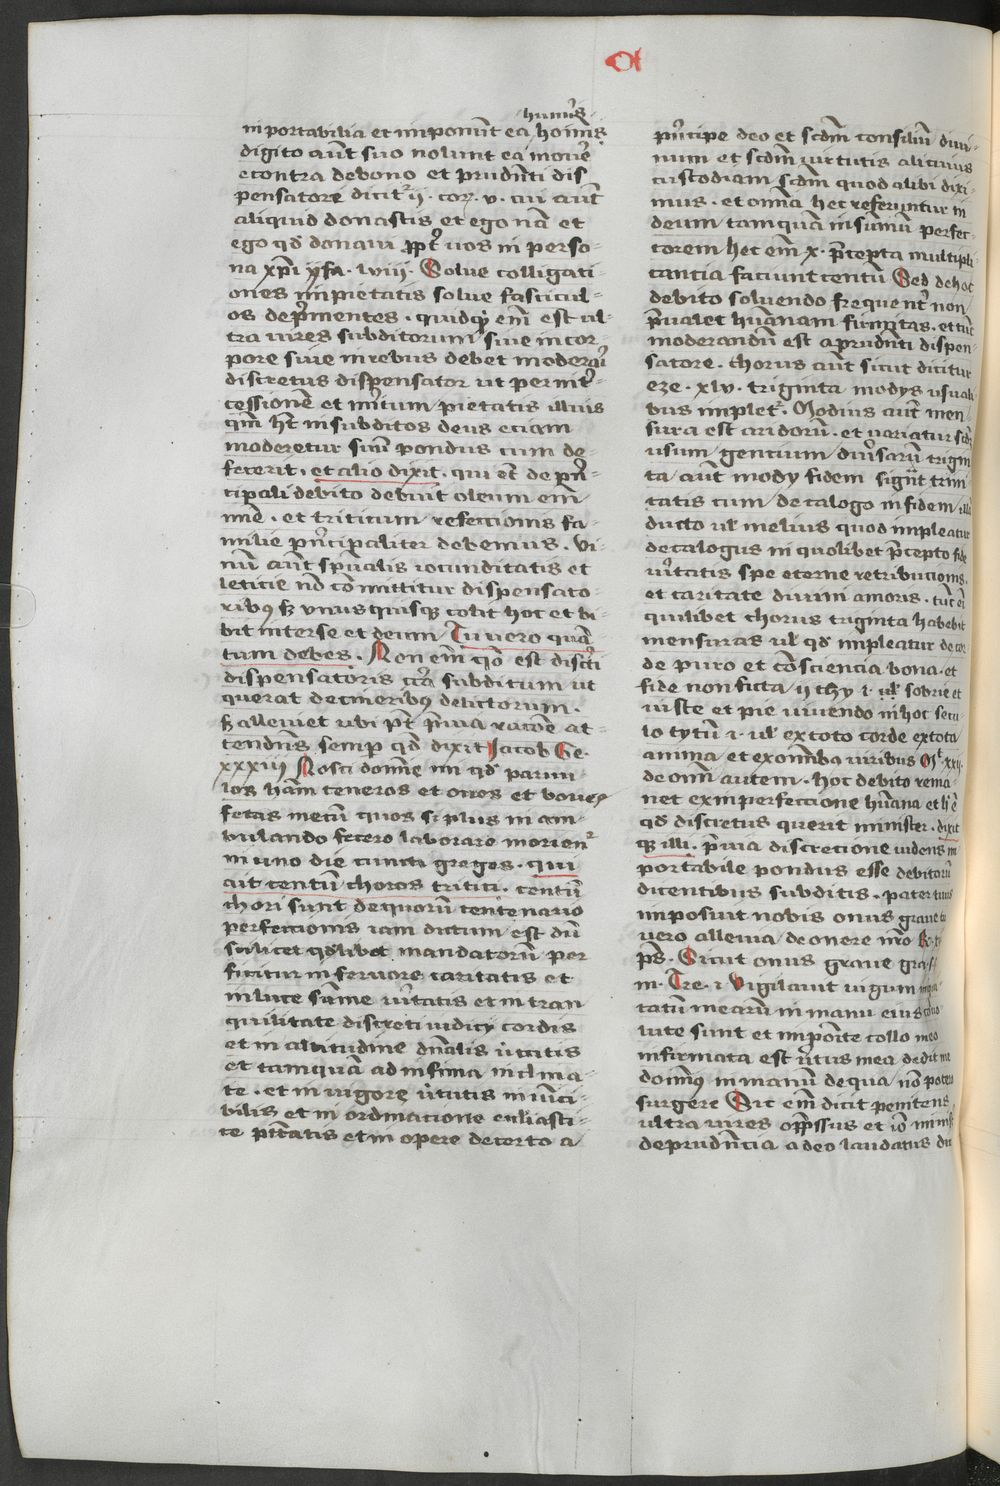 humeris
inportabilia et imponunt ea hominis
digito aut̄ suo nolunt ea mouere
econtra de bono et prudn̄ti dis
pensatore dicit᷑ ii . cor . v . cui aut̄
aliquid donastis et ego nā et
ego qd̄ donaui ꝓpt̄ uos in perso-
na xp̄i ysa . lviii . Solue colligati-
ones impietatis solue fascicul-
os dep̄mentes . quidqȝ em̄ est ul-
tra uires subditorum siue in cor-
pore siue in rebus debet moderari
discretus dispensator ut permit-
cessionē et mītum pietatis illius
qm̄ ht̄ in subditos deus eciam
moderetur suū pondus cum de-
fecerit . et alio dixit . qui et̄ de prin-
cipali debito debuit oleum em̄
mīe . et triticum refeccionis fa-
milie prīcipaliter debemus . Vi-
nū aut̄ spūalis iocunditatis et
leticie nō cōmittitur dispensato-
ribus sȝ unusquisqȝ colit hoc et bi-
bit inter se et deum Tu uero quā-
tum debes . Non em̄ qō est discr̄ti
dispensatoris cͣ subditum ut
querat de cineribus delictorum .
sȝ alleuiet ubi pt̄ p̄uia racōe at-
tendens semper qd̄ dixit Jacob Ge .
xxxiii Nosti domine mi qd̄ paruu-
los ham̄ teneros et oues et boues
fetas mecū quos si plus in am-
bulando fecero laborare morient᷑
in uno die cuncti greges . qui
ait centū choros tritici . centū
chori sunt de quorū centenario
perfeccionis iam dictum est dū
scilicet qd̄libet mandatorū per
ficitur in feruore caritatis et
in luce sūme ūitatis et in tran
quilitate discreti iudicii cordis
et in altitudine dn̄alis ūtutis
et tamquā ad infima inclina-
te . et in uigore ūtutis inuīci-
bilis et in ordinacione
te pīetatis et in opere decerto a
principe deo et scd̄m consiliū diui-
num et scd̄m uirtutis alicuius
custodiam scd̄m quod alibi dixi-
mus . et omnia hec referuntur in
deum tamquā in sūmū perfec-
torem hec em̄ x . p̄cepta multipli-
cancia faciunt centū Sed de hoc
debito soluendo frequent̄ non
p̄ualet hūanam firmitas . et tūc
moderandū est a prudn̄ti dispen
satore . chorus aut̄ sicut dicitur
eze . xlv . triginta modijs usuali
bus implet᷑ . Modius aut̄ men-
sura est aridorū . et uariatur scd̄
usum gentium diūsarū trigin
ta aut̄ modij fidem signāt trini
tatis cum decalogo in fidem
ducto ul̄ melius quod impleatur
decalogus in quolibet p̄cepto fide
ūitatis spe eterne retribucionis .
et caritate diuini amoris . tūc em̄
quilibet chorus triginta habebit
mensuras ul̄ qd̄ impleatur de cor
de puro et cōsciencia bona . et
fide non ficta ii thy i . ul̄ sobrie et
iuste et pie uiuendo in hoc secu
lo tytū i . ul̄ ex toto corde ex tota
anima et ex omnibus uiribus Mt xxii .
de omī autem . hoc debito rema-
net ex inperfeccione hūana et h̄ ē
qd̄ discretus querit minister . dixit
qȝ illi . p̄uia discrecione uidens in
portabile pondus esse debitorū
dicentibus subditis . pater tuus
imposuit nobis onus graue tu
uero alleuia de onere nr̄o
ps̄ . Sicut onus graue gra-
Tre . i Vigilauit iugum
tatū mearū in manu eius
lute sunt et imposite collo meo
infirmata est ūtus mea dedit me
dominus in manū de qua nō potero
surgere Sic em̄ dicit penitens
ultra uires opp̄ssus et iō
de prudn̄tia a deo laudatus